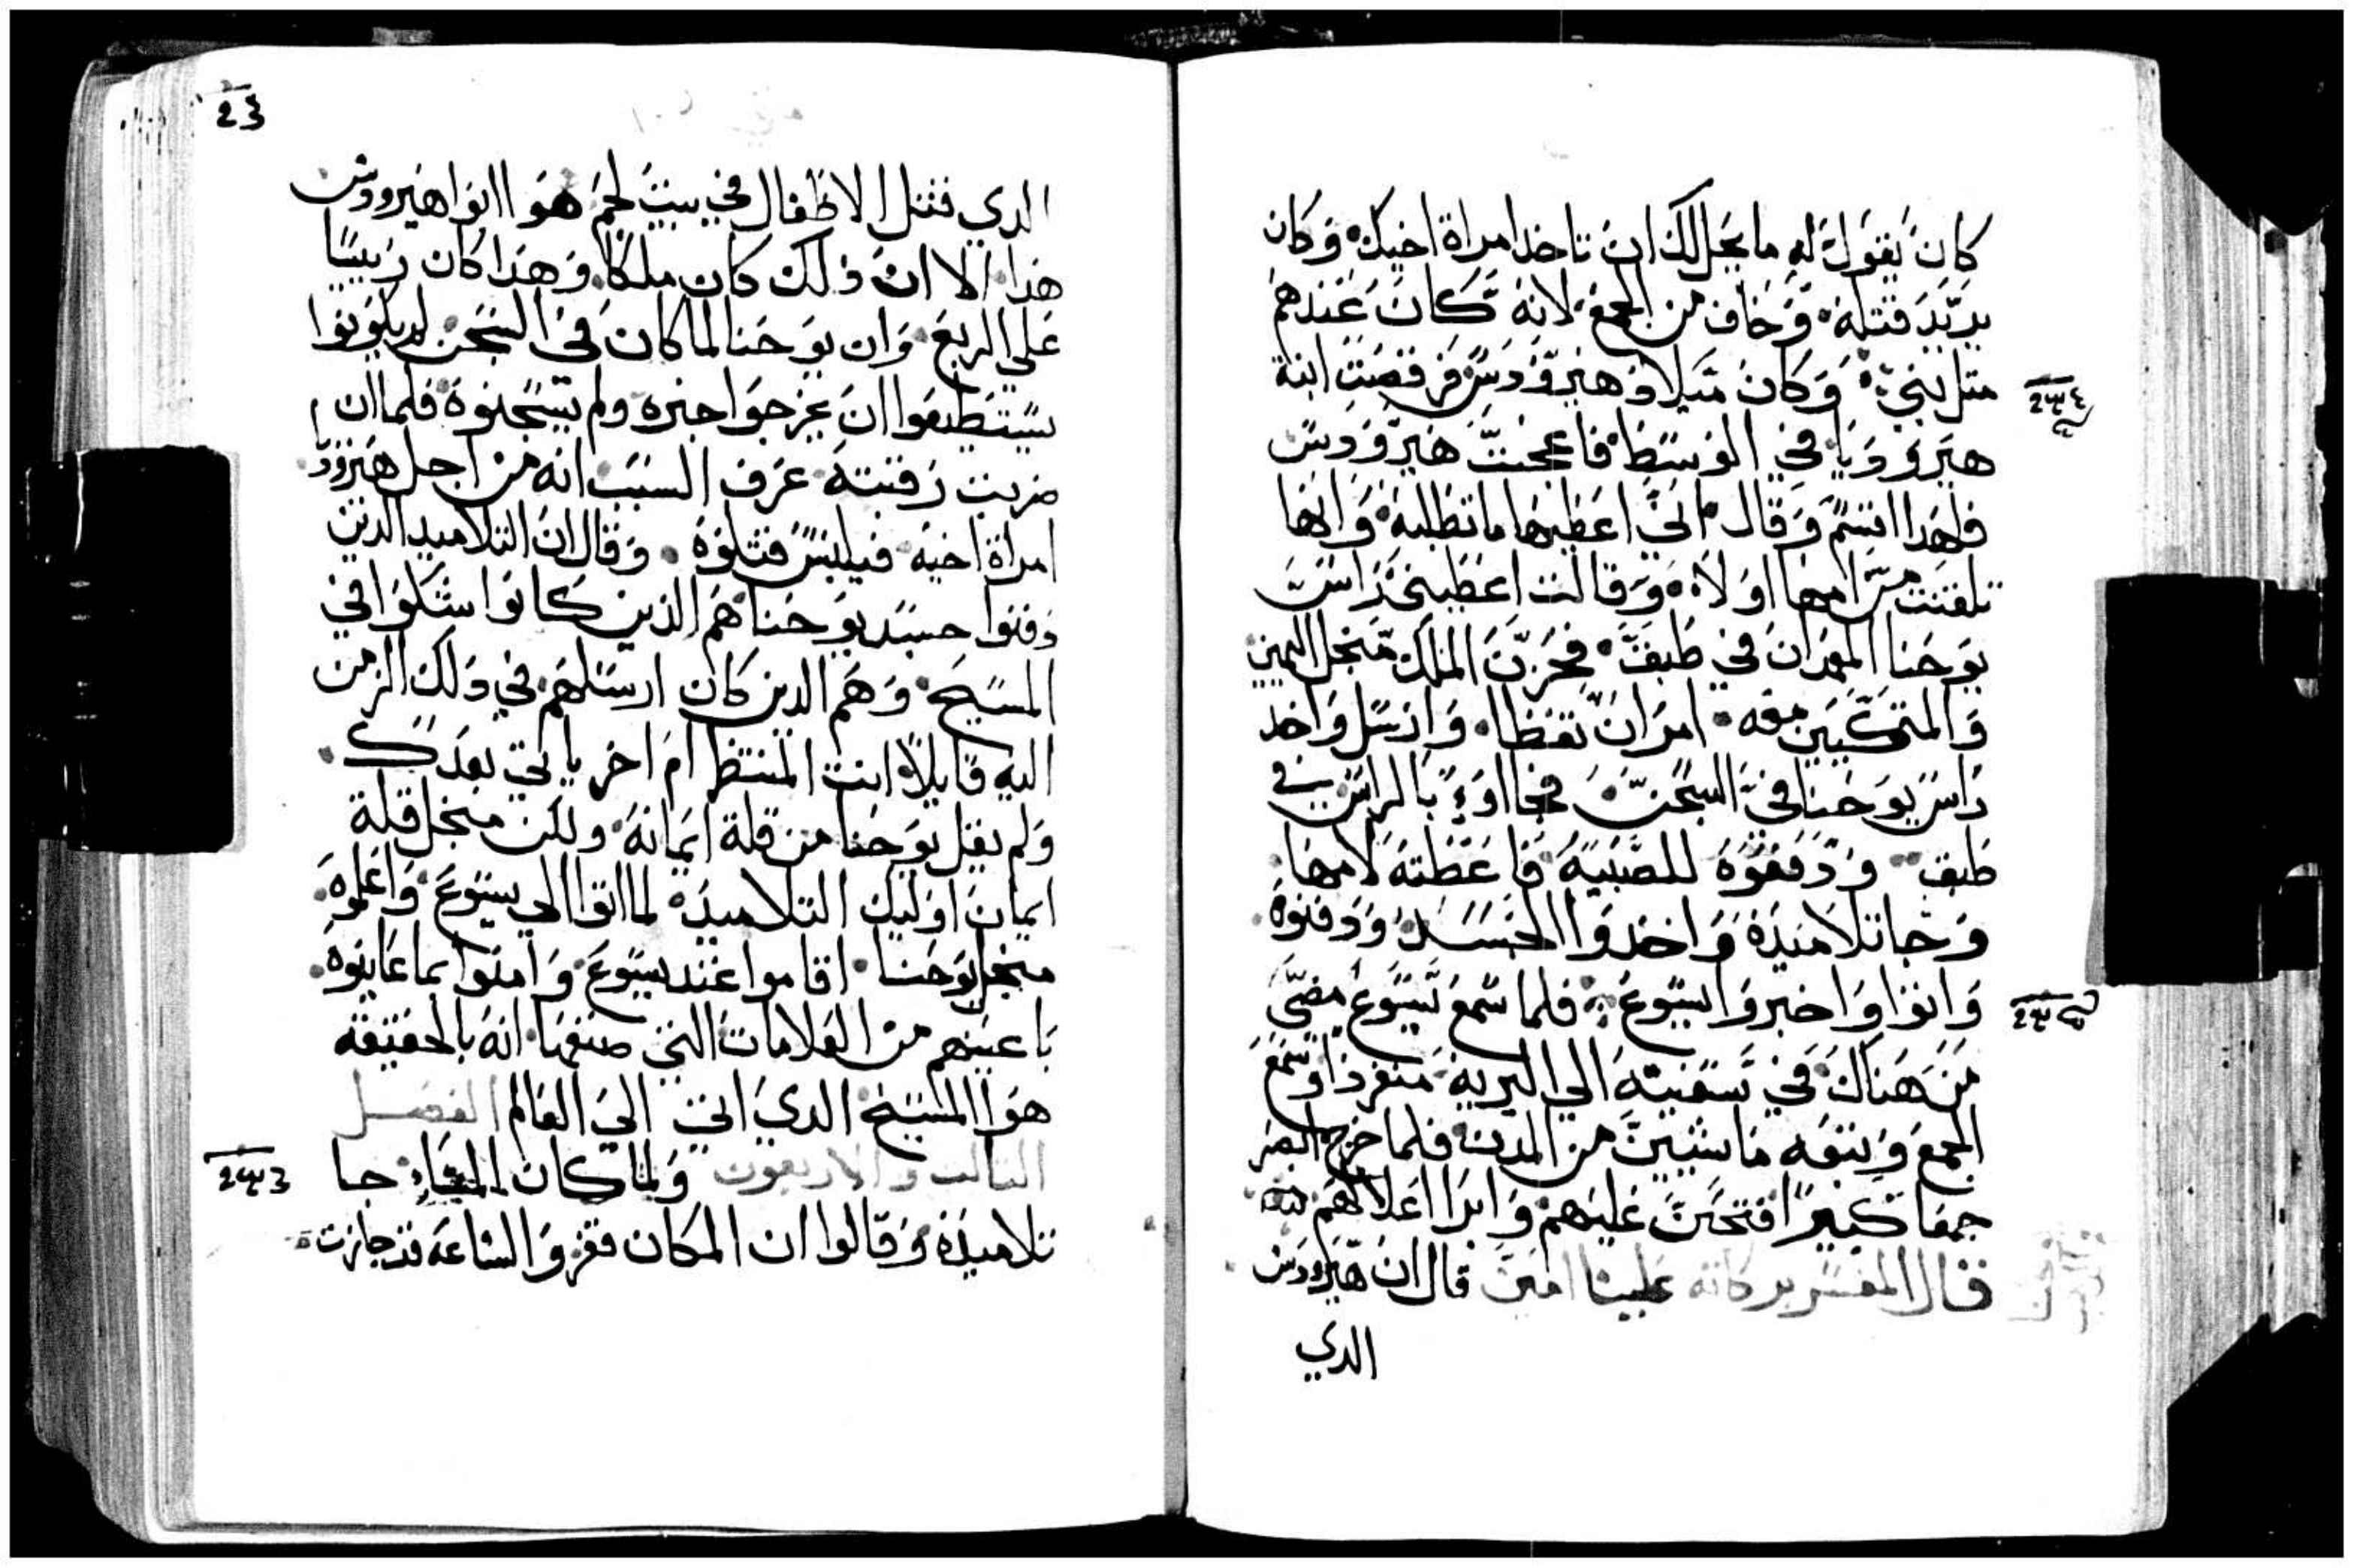 كان يقول له ما يحل لك ان تاخد امراة اخيك وكان
يريد قتله وخاف من الجمع لانه كان عندهم
متل نبي وكان ميلاد هيرودس فرقصت ابنة
هيروديا في الوسط فاعجبت هيرودس
فلهدا اقسم وقال اني اعطيها ما تطلبه وانها
تلقنت من امها اولا وقالت اعطيني راس
يوحنا المعمدان في طبق فحزن الملك منجل اليمين
والمتكيين معه امر ان تعطا وارسل واخد
راس يوحنا في السجن فجااوو بالراس في
طبق ودفعوه للصبيه فاعطته لامها
وجا تلاميده واخدوا الجسد ودفنوه
واتوا واخبروا يسوع فلما سمع يسوع مضي
من هناك في سفينه الي البريه منفردا وسمع
الجمع وتبعه ماشيين من المدن فلما خرج ابصر
جمعا كبيرا فتحنن عليهم وابرا اعلالهم
قال المفسر بركاته علينا امين قال ان هيرودس
الدي
الدي قتل الاطفال في بيت لحم هو ابوا هيرودس
هدا الا ان دلك كان ملكا وهدا كان رييسا
علي الربع وان يوحنا لما كان في السجن لم يكونوا
يستطيعوا ان يخرجوا خبره ولم يسجنوه فلما ان
ضربت رقبته عرف السبب انه من اجل هيروديا
امراة اخيه فيلبس قتلوه وقال ان التلاميد الدين
دفنوا جسد يوحنا هم الدين كانوا شكوا في
المسيح وهم الدين كان ارسلهم في دلك الزمن
اليه قايلا انت المنتظر ام اخر ياتي بعدك
ولم يقل يوحنا من قلة ايمانه ولكن منجل قلة
ايمان اوليك التلاميد لما اتوا الي يسوع واعلموه
منجل يوحنا اقاموا عند يسوع وامنوا بما عاينوه
باعينهم من العلامات التي صنعها انه بالحقيقه
هوا المسيح الدي اتي الي العالم الفصل
التالت والاربعون ولما كان المساء جا
تلاميده وقالوا ان المكان قفر والساعه قد جازت